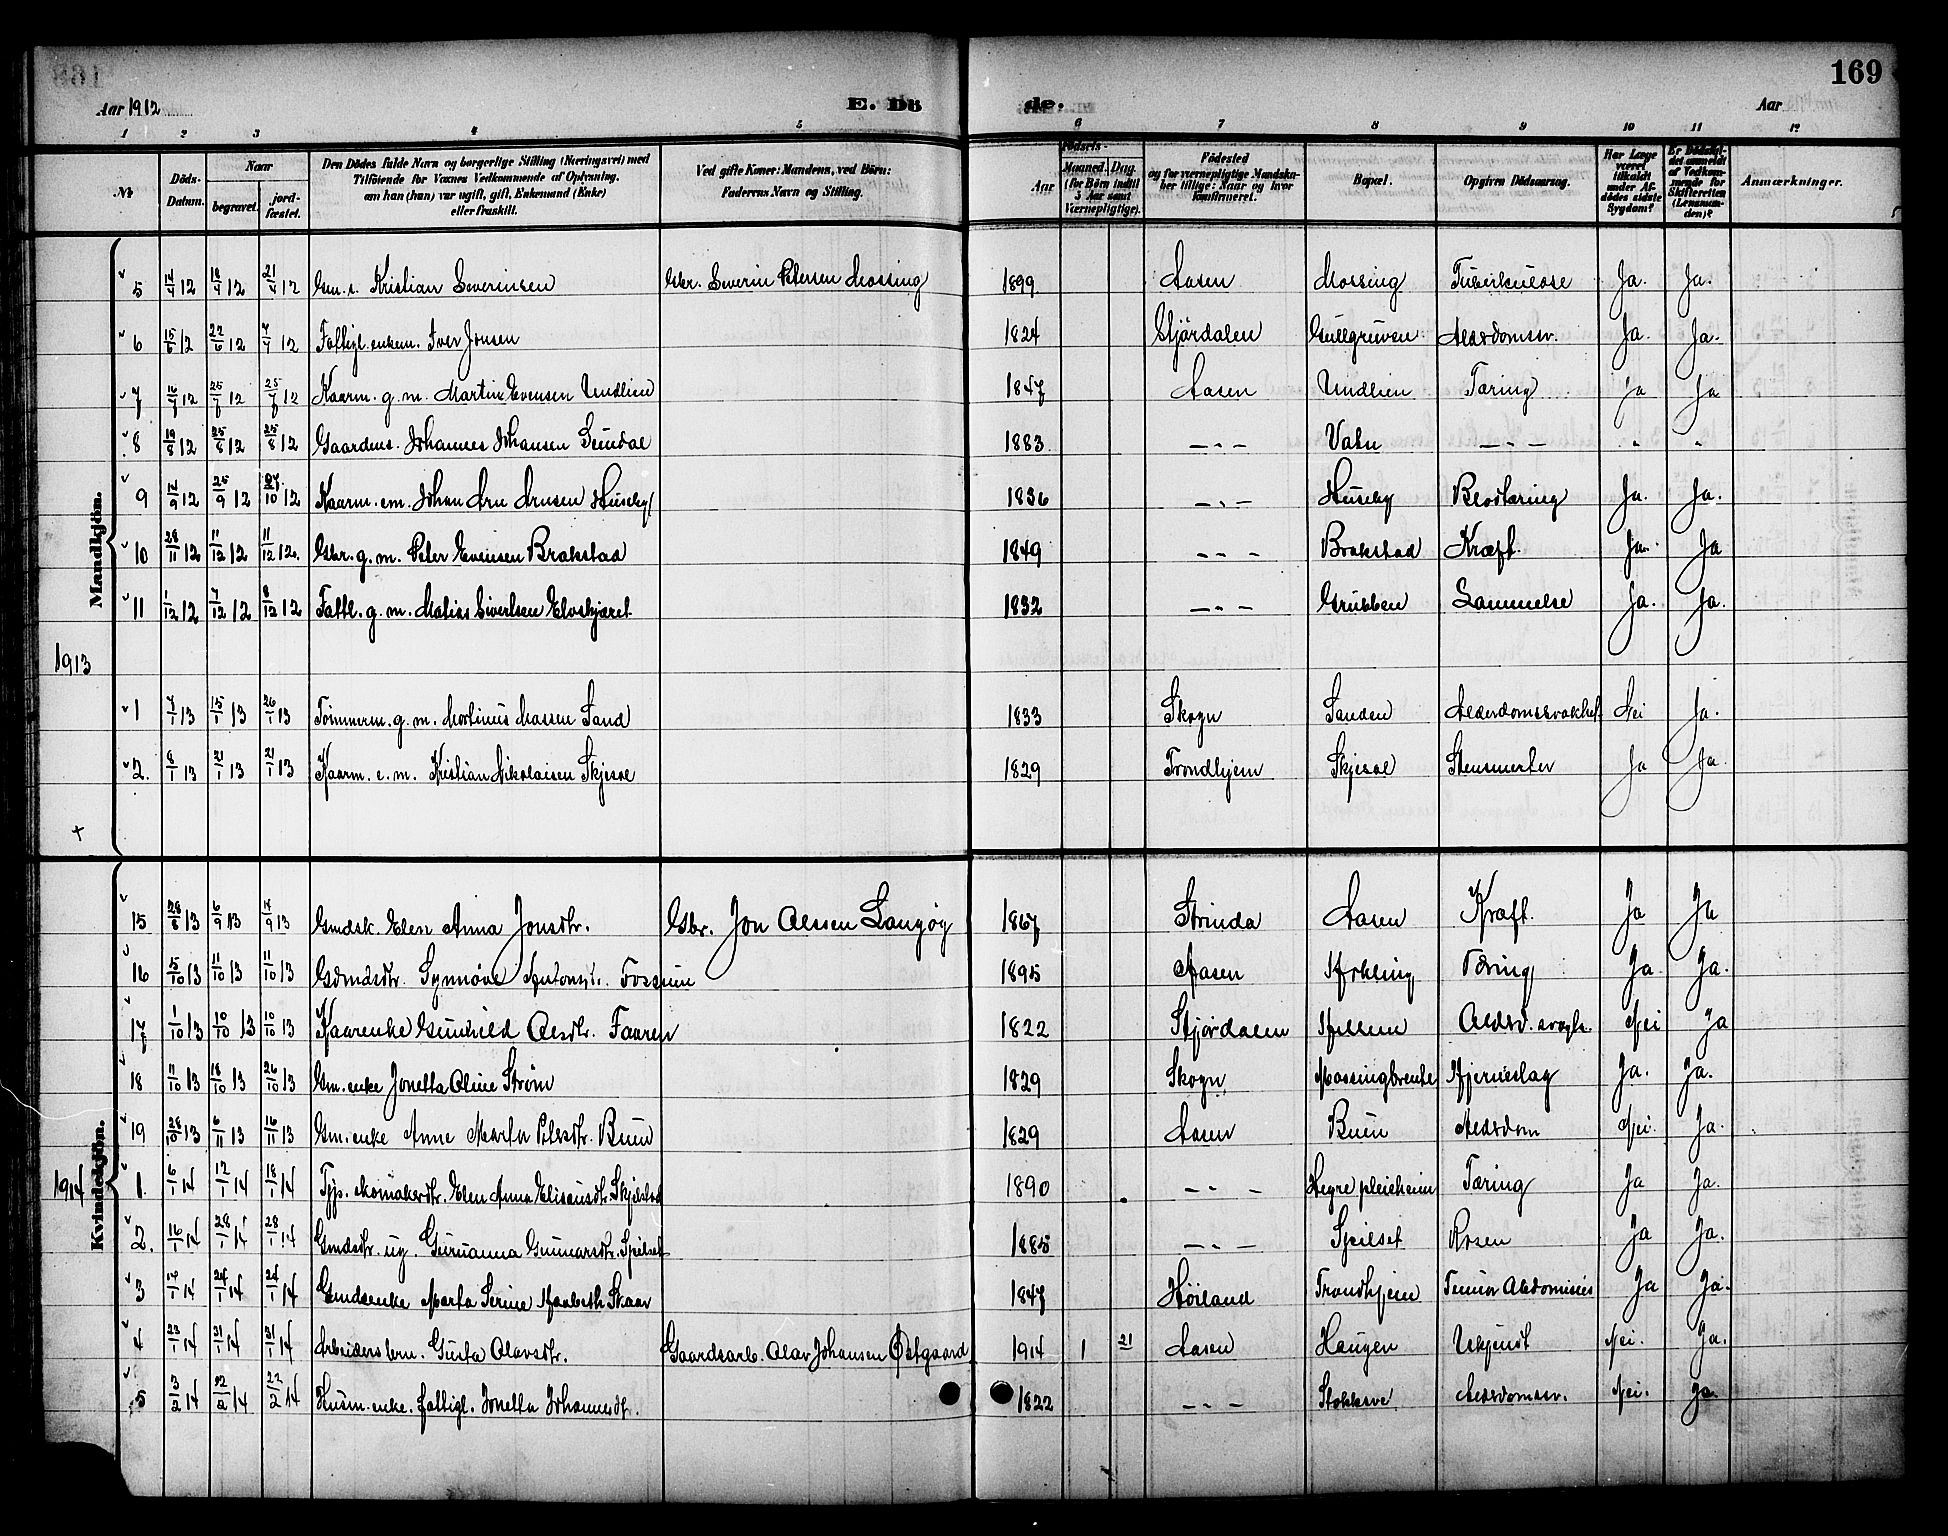 169
Aar 1912 E. Dö de. Aar
1 2 3 4 5 6 7 8 9 10 11 12
No. Döds-Datum. Naar begravet. jord-fæstet. Den Dödes fulde Navn og borgerlige Stilling (Næringsvei) med Tilföiende for Voxnes Vedkommende af Oplysning, om han (hun) var ugift, gift, Enkemand (Enke) eller fraskilt. Ved gifte Koner: Mandens, ved Börn: Faderens Navn og Stilling. Födsels- Aar Maaned. Dag. (for Börn indtil 5 Aar samt Værnepligtige). Födested og for værnepligtige Mandskaber tillige: Naar og hvor konfirmeret. Bopæl. Opgiven Dödsaarsag. Har Læge været tilkaldt under Afdödes sidste Sygdom? Er Dödsfaldet anmeldt af Vedkommende for Skifteretten (Lensmanden)? Anmærkninger.
Mandkjön.
5 14/4 12 18/4 12 21/4 12 Gm. s. Kristian Severinsen Gbr. Severin Petersen Mossing 1899 Aasen Mossing Tuberkulose Ja. Ja.
6 15/6 12 22/6 12 7/7 12 Fattigl. enkem. Iver Jonsen 1824 Stjördalen Gullgruven Aldersdomssv. Ja. Ja.
7 16/7 12 25/7 12 25/7 12 Kaarm. g. m. Martin Evensen Undlien 1847 Aasen Undlien Tæring Ja Ja
8 19/8 12 25/8 12 25/8 12 Gaardms. Johannes Johansen 1883 — „ — Vatn — „ — „ „
9 17/9 12 25/9 12 27/10 12 Kaarm. em. Johan Arn Arnsen Huseby 1836 — „ — Huseby Blodtæring Ja. Ja.
10 28/11 12 11/12 12 11/12 12 Gbr. g. m. Peter Evensen Brakstad 1849 — „ — Brakstad Kræft. Ja. Ja
11 1/12 12 7/12 12 8/12 12 Fattl. g. m. Matias Sivertsen Elvskjæret 1832 — „ — Grubben Lammelse Ja. Ja.
1913
1 7/1 13 15/1 13 26/1 13 Tømmerm. g. m. Mortinus Massen Sand 1833 Skogn Sanden Alderdomssvakhet Nei Ja.
2. 8/1 13 21/1 13 21/1 13 Kaarm. e. m. Kristian Nikolaisen Skjesol 1829 Trondhjem Skjesol Stensmerter Ja Ja.
Kvindekjön.
15 28/8 13 6/9 13 14/9 13 Gmdsk. Elen Anna Jonsdtr. Gbr. Jon Olssen Langøy 1867 Strinda Aasen Kræft. Ja Ja
16 5/10 13 11/10 13 11/10 13 Gdmdsdtr. Synnøve Antonsdtr. Fossum 1895 Aasen Hokling Tæring Ja. Ja.
17 1/10 13 10/10 13 10/10 13 Kaarenke Gunhild Olsdtr. Faaren 1822 Stjørdalen Hellem Aldsd. svagh. Nei Ja
18 11/10 13 18/10 13 26/10 13 Gm. enke Jonetta Oline Strøm 1829 Skogn Mossingbrenke Hjerneslag Ja. Ja.
19 28/10 13 6/11 13 16/11 13 Gm. enke Anne Marta Petersdtr. Buun 1829 Aasen Buun Aldersdom Nei. Ja.
1914
1. 6/1 14 17/1 14 18/1 14 Tjp. skomakerdtr. Elen Anna Eliseusdtr. Skjelstad 1890 — „ — Hegre pleieheim Tæring Ja Ja.
2. 16/1 14 28/1 14 28/1 14 Gmdsdtr. ug. Gurianna Gunnarsdtr. Spilset 1885 — „ — Spilset Rosen Ja Ja.
3 17/1 14 24/1 14 24/1 14 Gmdsenke Marta Serine Skaar 1847 Høiland Trondhjem Tumor Abdominis Ja Ja.
4 23/1 14 31/1 14 31/1 14 Arbeidersbrn. Gusta Olavsdtr. Gaardsarb. Olav Johansen Østgaard 1914 1 21 Aasen Haugen Ukjendt Nei. Ja.
5 3/2 14 22/2 14 22/2 14 Husm. enke. fattigl. Jonetta Johannesdtr. 1822 — „ — Stokksve Aldersdomssv. Nei. Ja.